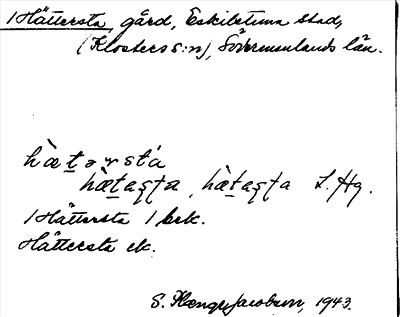 Hättersta, gård, Eskilstuna stad,
(Klosters s:n), Södermanlands län.
hæ̀t̠ərstá
hæ̀t̠aʂʈa, hæ̀t̠aʂʈa L. Hg.
Hättersta 1 brk.
Hättersta ek.
S. Hænger Jacobsen, 1943.